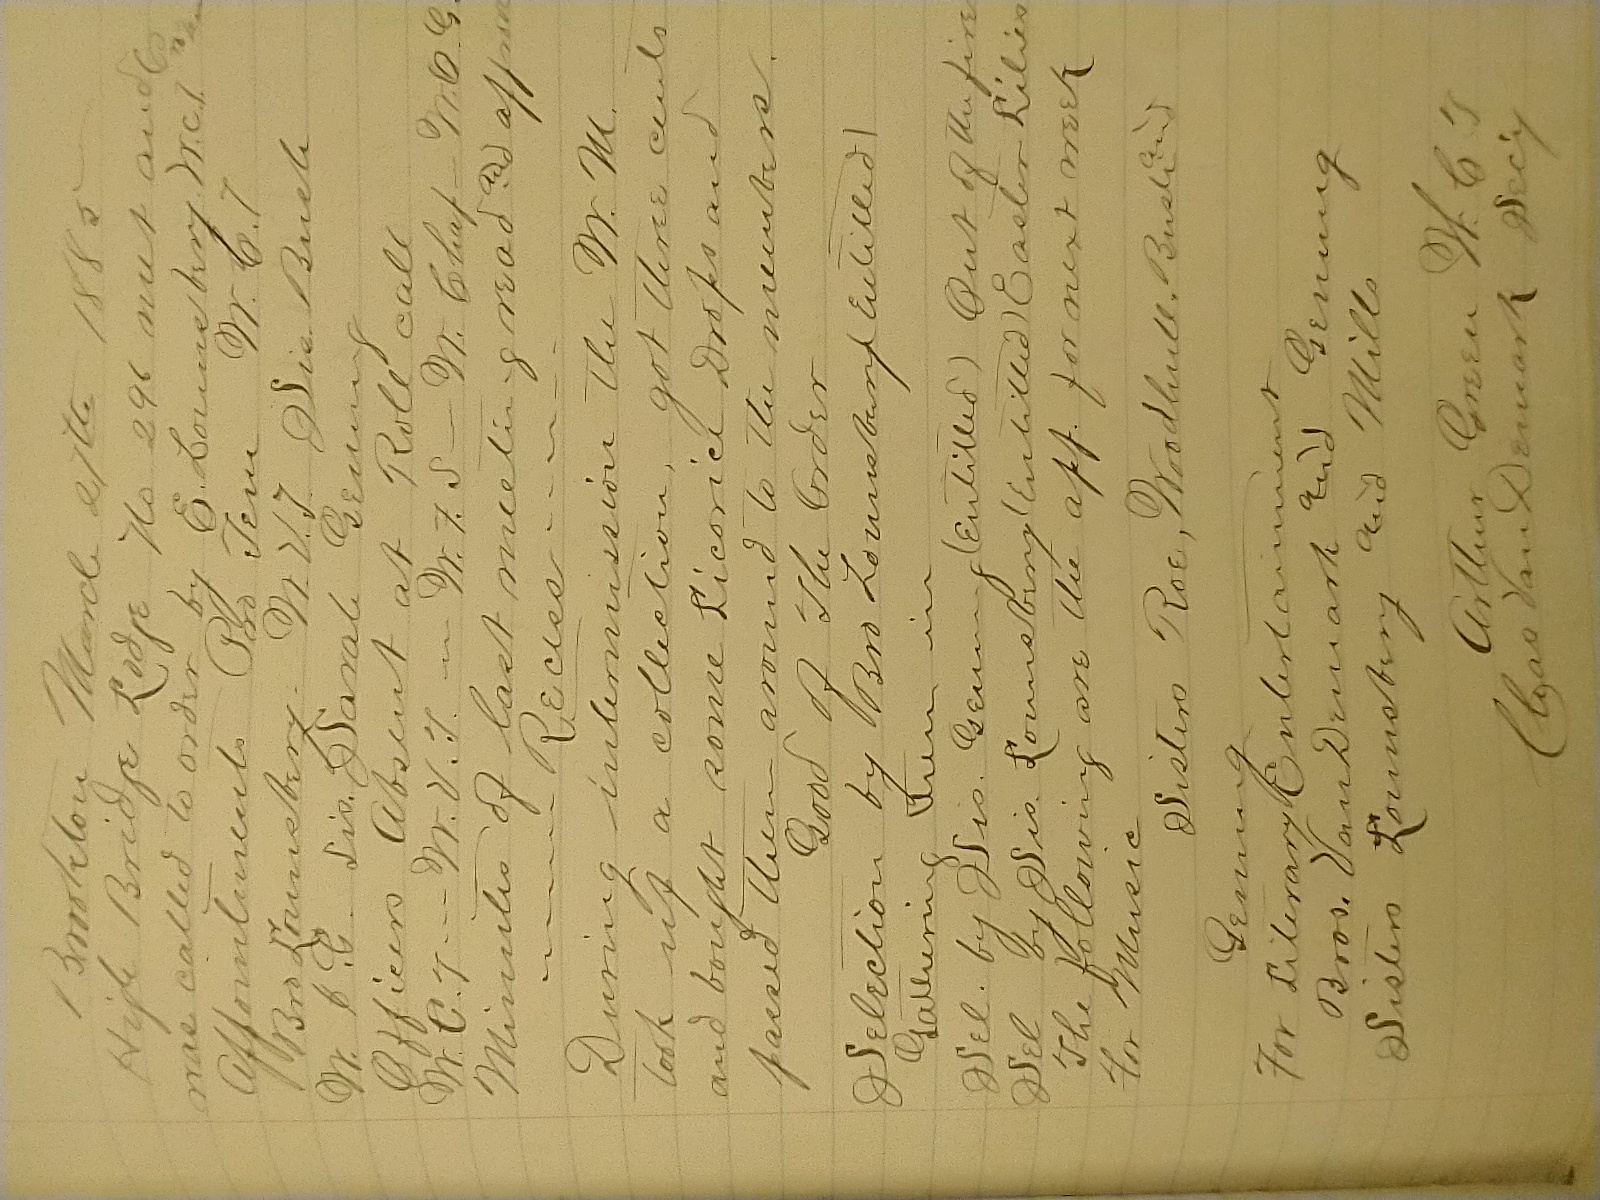 Brookton March 27th 1885
High Bridge Lodge No 296 met and
was called to order by E. Lounsbery W.C.T.
Appointments Pro Tem W. C. T
Bro Lounsbery. W.V.T. Sis. Bush
W. O. G. Sis. Sarah Genung
Officers Absent at Roll call
W. C. T -- W. V. T. -- W. F. S — W. Chap — W. O. G.
Minutes of last meeting read and
----- Recess -----
During intermission the W. M.
took up a collection, got three cents
and bought some Licorice Drops and
passed them around to the members.
Good of The Order
Selection by Bro Lounsbery (Entitled)
Gathering them in
Sel. by Sis. Genung (Entitled) Out of the fire
Sel by Sis. Lounsbery (Entitled) Easter Lilies
The following are the app. for next week
For Music
Sisters Roe, Woodhull. Bush and
Genung
For Literary Entertainment
Bros. VanDemark and Genung
Sisters Lounsbery and Mills
Arthur Green W. C T
Chas VanDemark Sec'y